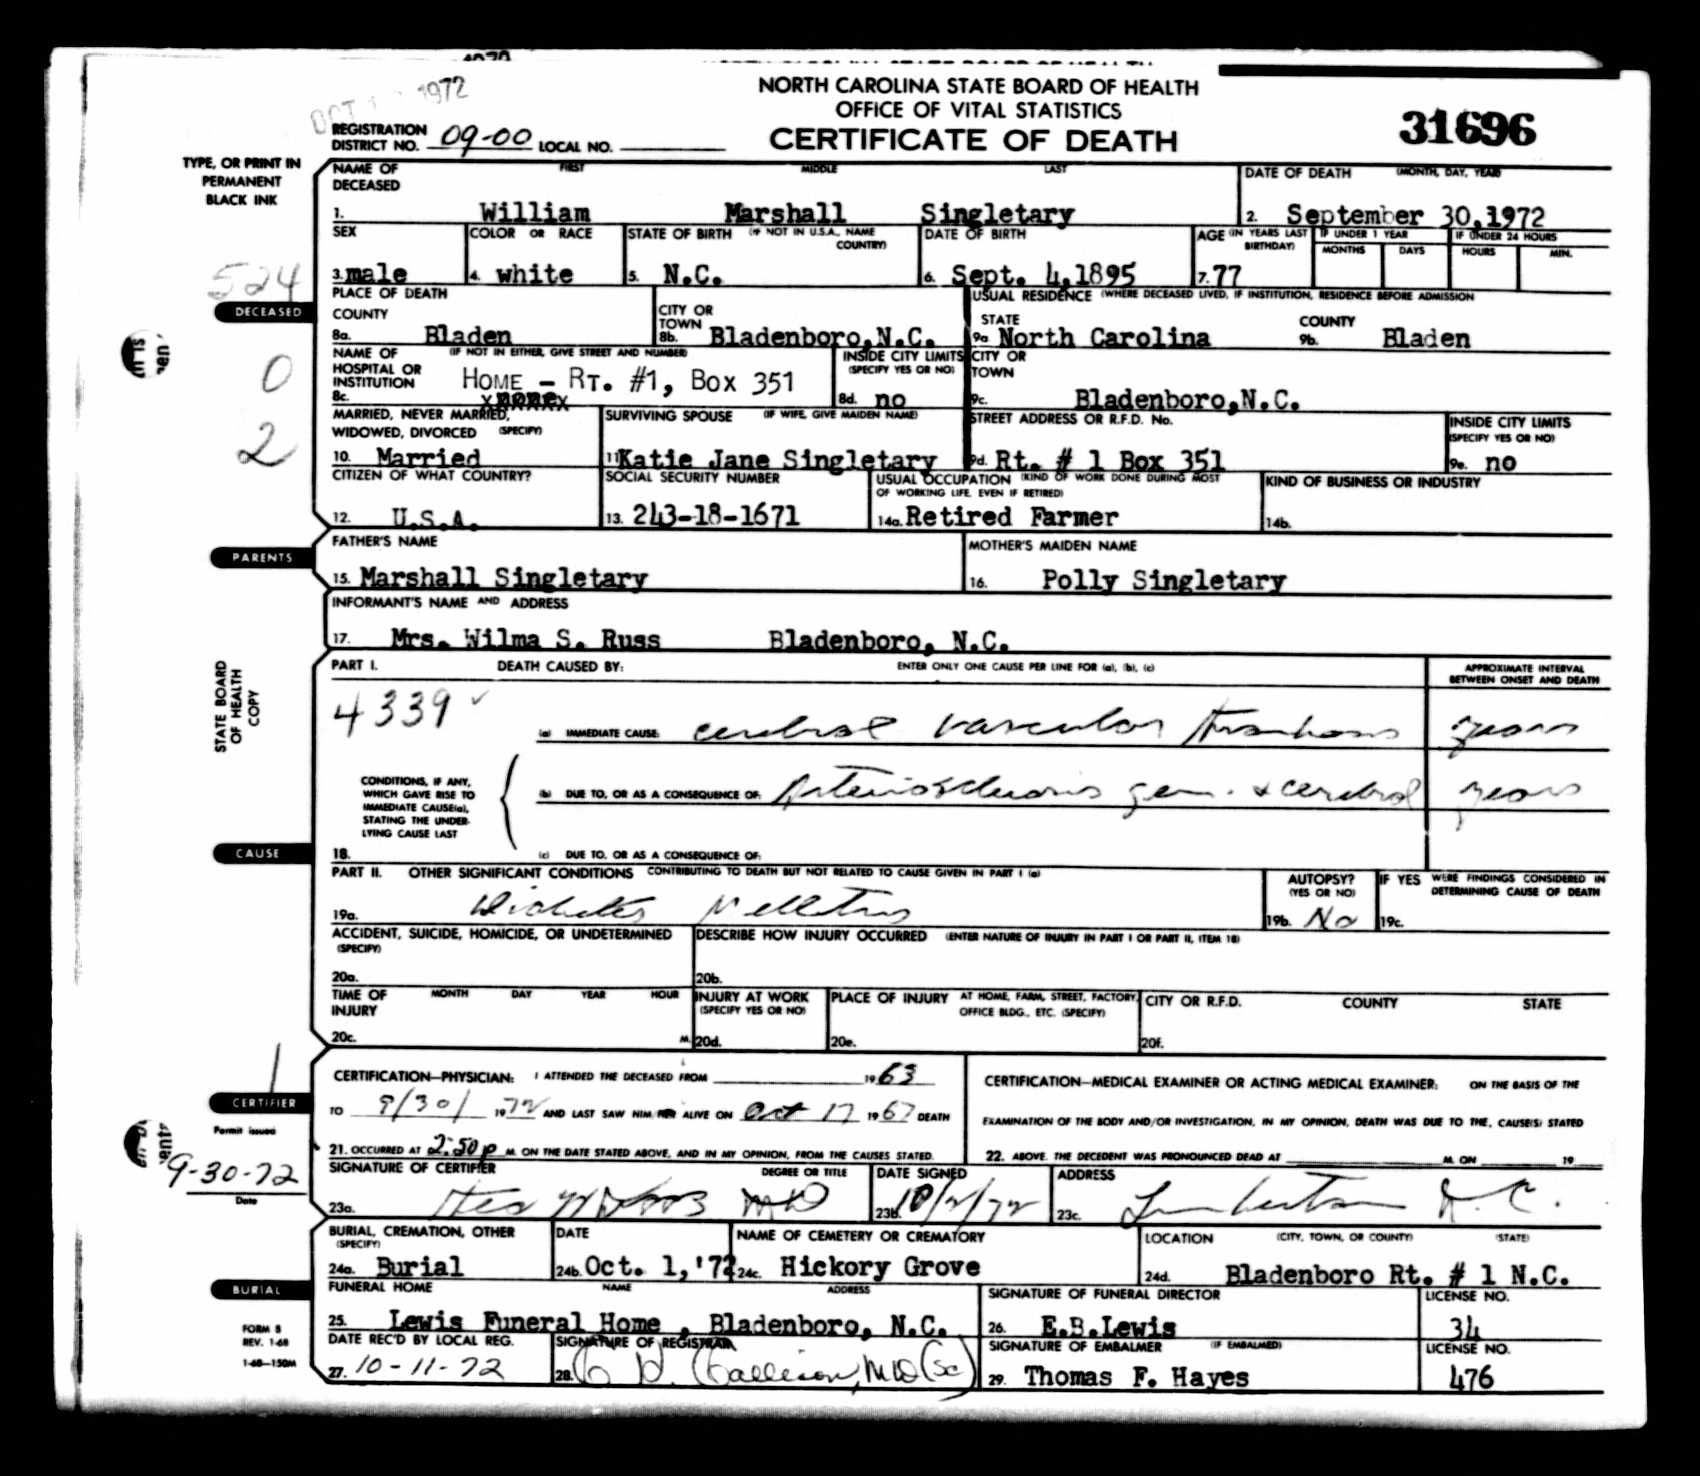 OCT 1972
NORTH CAROLINA STATE BOARD OF HEALTH
OFFICE OF VITAL STATISTICS
CERTIFICATE OF DEATH
31696
REGISTRATION DISTRICT NO. 09-00 LOCAL NO.
TYPE, OR PRINT IN
PERMANENT
BLACK INK
NAME OF DECEASED FIRST MIDDLE LAST
1. William Marshall Singletary
DATE OF DEATH (MONTH, DAY, YEAR)
2. September 30,1972
SEX
3. male
COLOR OR RACE
4. white
STATE OF BIRTH (IF NOT IN U.S.A., NAME COUNTRY)
5. N.C.
DATE OF BIRTH
6. Sept. 4,1895
AGE (IN YEARS LAST BIRTHDAY)
7. 77
IF UNDER 1 YEAR
MONTHS DAYS
IF UNDER 24 HOURS
HOURS MIN.
524
DECEASED
0
2
PLACE OF DEATH
COUNTY
8a. Bladen
CITY OR TOWN
8b. Bladenboro,N.C.
USUAL RESIDENCE (WHERE DECEASED LIVED, IF INSTITUTION, RESIDENCE BEFORE ADMISSION
STATE
9a North Carolina
COUNTY
9b. Bladen
NAME OF HOSPITAL OR INSTITUTION (IF NOT IN EITHER, GIVE STREET AND NUMBER)
HOME - RT. #1, BOX 351
8c. none
INSIDE CITY LIMITS (SPECIFY YES OR NO)
8d. no
CITY OR TOWN
9c. Bladenboro,N.C.
MARRIED, NEVER MARRIED, WIDOWED, DIVORCED (SPECIFY)
10. Married
SURVIVING SPOUSE (IF WIFE, GIVE MAIDEN NAME)
11 Katie Jane Singletary
STREET ADDRESS OR R.F.D. No.
9d. Rt. # 1 Box 351
INSIDE CITY LIMITS (SPECIFY YES OR NO)
9e. no
CITIZEN OF WHAT COUNTRY?
12. U.S.A.
SOCIAL SECURITY NUMBER
13. 243-18-1671
USUAL OCCUPATION (KIND OF WORK DONE DURING MOST OF WORKING LIFE, EVEN IF RETIRED)
14a. Retired Farmer
KIND OF BUSINESS OR INDUSTRY
14b.
PARENTS
FATHER'S NAME
15. Marshall Singletary
MOTHER'S MAIDEN NAME
16. Polly Singletary
INFORMANT'S NAME AND ADDRESS
17. Mrs. Wilma S. Russ Bladenboro, N.C.
STATE BOARD
OF HEALTH
COPY
PART I. DEATH CAUSED BY: ENTER ONLY ONE CAUSE PER LINE FOR (a), (b), (c)
APPROXIMATE INTERVAL
BETWEEN ONSET AND DEATH
4339
(a) IMMEDIATE CAUSE: cerebral vascular thrombosis years
CONDITIONS, IF ANY,
WHICH GAVE RISE TO
IMMEDIATE CAUSE(a),
STATING THE UNDER-
LYING CAUSE LAST
(b) DUE TO, OR AS A CONSEQUENCE OF: Arteriosclerosis gen. & cerebral years
CAUSE
18. (c) DUE TO, OR AS A CONSEQUENCE OF:
PART II. OTHER SIGNIFICANT CONDITIONS CONTRIBUTING TO DEATH BUT NOT RELATED TO CAUSE GIVEN IN PART I (a)
19a. Diabetes Mellitus
AUTOPSY? (YES OR NO)
19b. No
IF YES WERE FINDINGS CONSIDERED IN DETERMINING CAUSE OF DEATH
19c.
ACCIDENT, SUICIDE, HOMICIDE, OR UNDETERMINED (SPECIFY)
20a.
DESCRIBE HOW INJURY OCCURRED (ENTER NATURE OF INJURY IN PART I OR PART II, ITEM 18)
20b.
TIME OF INJURY MONTH DAY YEAR HOUR
20c. M.
INJURY AT WORK (SPECIFY YES OR NO)
20d.
PLACE OF INJURY AT HOME, FARM, STREET, FACTORY, OFFICE BLDG., ETC. (SPECIFY)
20e.
CITY OR R.F.D. COUNTY STATE
20f.
1
CERTIFIER
Permit issued
9-30-72
Date
CERTIFICATION—PHYSICIAN: I ATTENDED THE DECEASED FROM 1963
TO 9/30/ 1972 AND LAST SAW HIM/HER ALIVE ON Oct 17 1967 DEATH
21. OCCURRED AT 2:50 P M. ON THE DATE STATED ABOVE, AND IN MY OPINION, FROM THE CAUSES STATED.
CERTIFICATION—MEDICAL EXAMINER OR ACTING MEDICAL EXAMINER: ON THE BASIS OF THE
EXAMINATION OF THE BODY AND/OR INVESTIGATION, IN MY OPINION, DEATH WAS DUE TO THE, CAUSE(S) STATED
22. ABOVE. THE DECEDENT WAS PRONOUNCED DEAD AT M. ON 19
SIGNATURE OF CERTIFIER DEGREE OR TITLE
23a. MD
DATE SIGNED
23b. 10/2/72
ADDRESS
23c. Lumberton N.C.
BURIAL
BURIAL, CREMATION, OTHER (SPECIFY)
24a. Burial
DATE
24b. Oct. 1,'72
NAME OF CEMETERY OR CREMATORY
24c. Hickory Grove
LOCATION (CITY, TOWN, OR COUNTY) (STATE)
24d. Bladenboro Rt. # 1 N.C.
FUNERAL HOME NAME ADDRESS
25. Lewis Funeral Home , Bladenboro, N.C.
SIGNATURE OF FUNERAL DIRECTOR
26. E.B.Lewis
LICENSE NO.
34
FORM 8
REV. 1-68
1-68—150M
DATE REC'D BY LOCAL REG.
27. 10-11-72
SIGNATURE OF REGISTRAR
28.
SIGNATURE OF EMBALMER (IF EMBALMED)
29. Thomas F. Hayes
LICENSE NO.
476